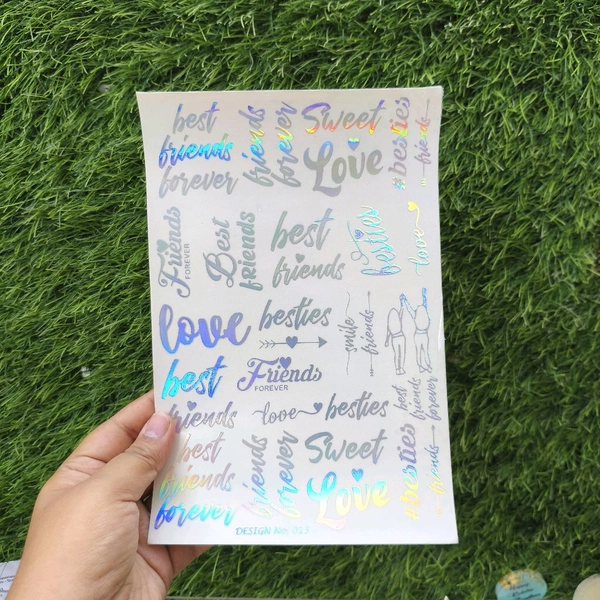 best
friends
forever
friends
forever
Sweet
Love
#besties
friends
Friends
FOREVER
Best
friends
best
friends
besties
love
love
besties
smile
friends
best
Friends
FOREVER
friends
love
besties
best
friends
forever
best
friends
forever
friends
forever
Sweet
Love
#besties
friends
DESIGN No. 013